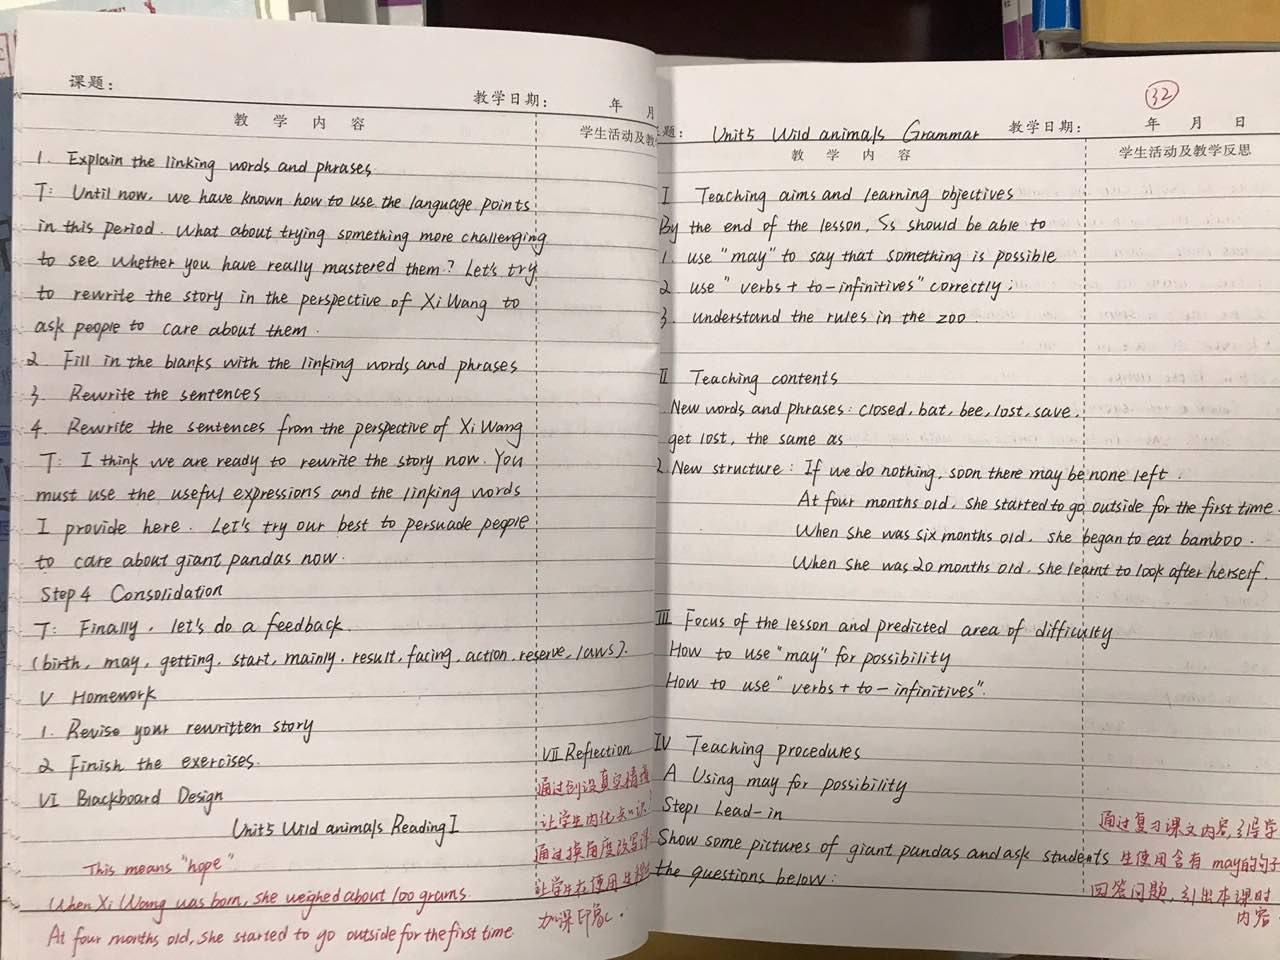 课题：
教学日期： 年 月
教 学 内 容
学生活动及教
1. Explain the linking words and phrases
T: Until now, we have known how to use the language points
in this period. What about trying something more challenging
to see whether you have really mastered them? Let's try
to rewrite the story in the perspective of Xi Wang to
ask people to care about them.
2 Fill in the blanks with the linking words and phrases
3. Rewrite the sentences
4. Rewrite the sentences from the perspective of Xi Wang
T: I think we are ready to rewrite the story now. You
must use the useful expressions and the linking words
I provide here. Let's try our best to persuade people
to care about giant pandas now.
Step 4 Consolidation
T: Finally, let's do a feedback.
(birth, may, getting, start, mainly, result, facing, action, reserve, laws).
V Homework
1. Revise your rewritten story
2 Finish the exercises.
VI Blackboard Design
Unit5 Wild animals Reading I
This means "hope".
When Xi Wang was born, she weighed about 100 grams.
At four months old, she started to go outside for the first time
VII Reflection
通过创设真实情境
让学生内化知识
通过换角度改写
让学生在使用
加深印象.
32
题： Unit5 Wild animals Grammar
教学日期： 年 月 日
教 学 内 容
学生活动及教学反思
I Teaching aims and learning objectives
By the end of the lesson, Ss should be able to
1. use "may" to say that something is possible
2 use "verbs + to-infinitives" correctly.
3. understand the rules in the zoo.
II Teaching contents
New words and phrases: closed, bat, bee, lost, save,
get lost, the same as
2. New structure: If we do nothing, soon there may be none left.
At four months old, she started to go outside for the first time.
When she was six months old, she began to eat bamboo.
When she was 20 months old, she learnt to look after herself.
III Focus of the lesson and predicted area of difficulty
How to use "may" for possibility
How to use "verbs + to-infinitives".
IV Teaching procedures
A Using may for possibility
Step1 Lead-in
Show some pictures of giant pandas and ask students
the questions below:
通过复习课文内容,引导学
生使用含有 may的句子
回答问题,引出本课时
内容